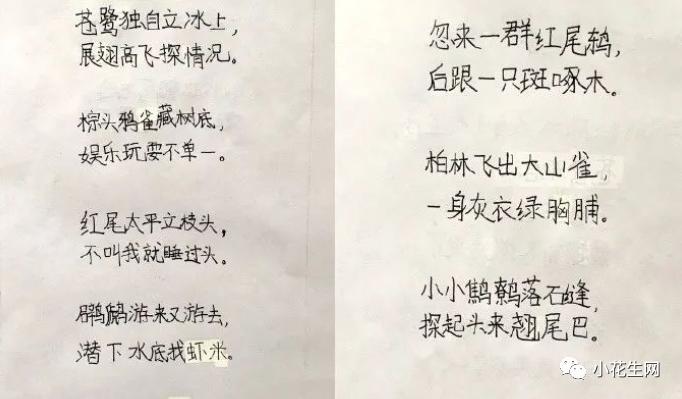 苍鹭独自立冰上，
展翅高飞探情况。
棕头鸦雀藏树底，
娱乐玩耍不单一。
红尾太平立枝头，
不叫我就睡过头。
䴙䴘游来又游去，
潜下水底找虾米。
忽来一群红尾鸫，
后跟一只斑啄木。
柏林飞出大山雀，
一身灰衣绿胸脯。
小小鹪鹩落石缝，
探起头来翘尾巴。
小花生网